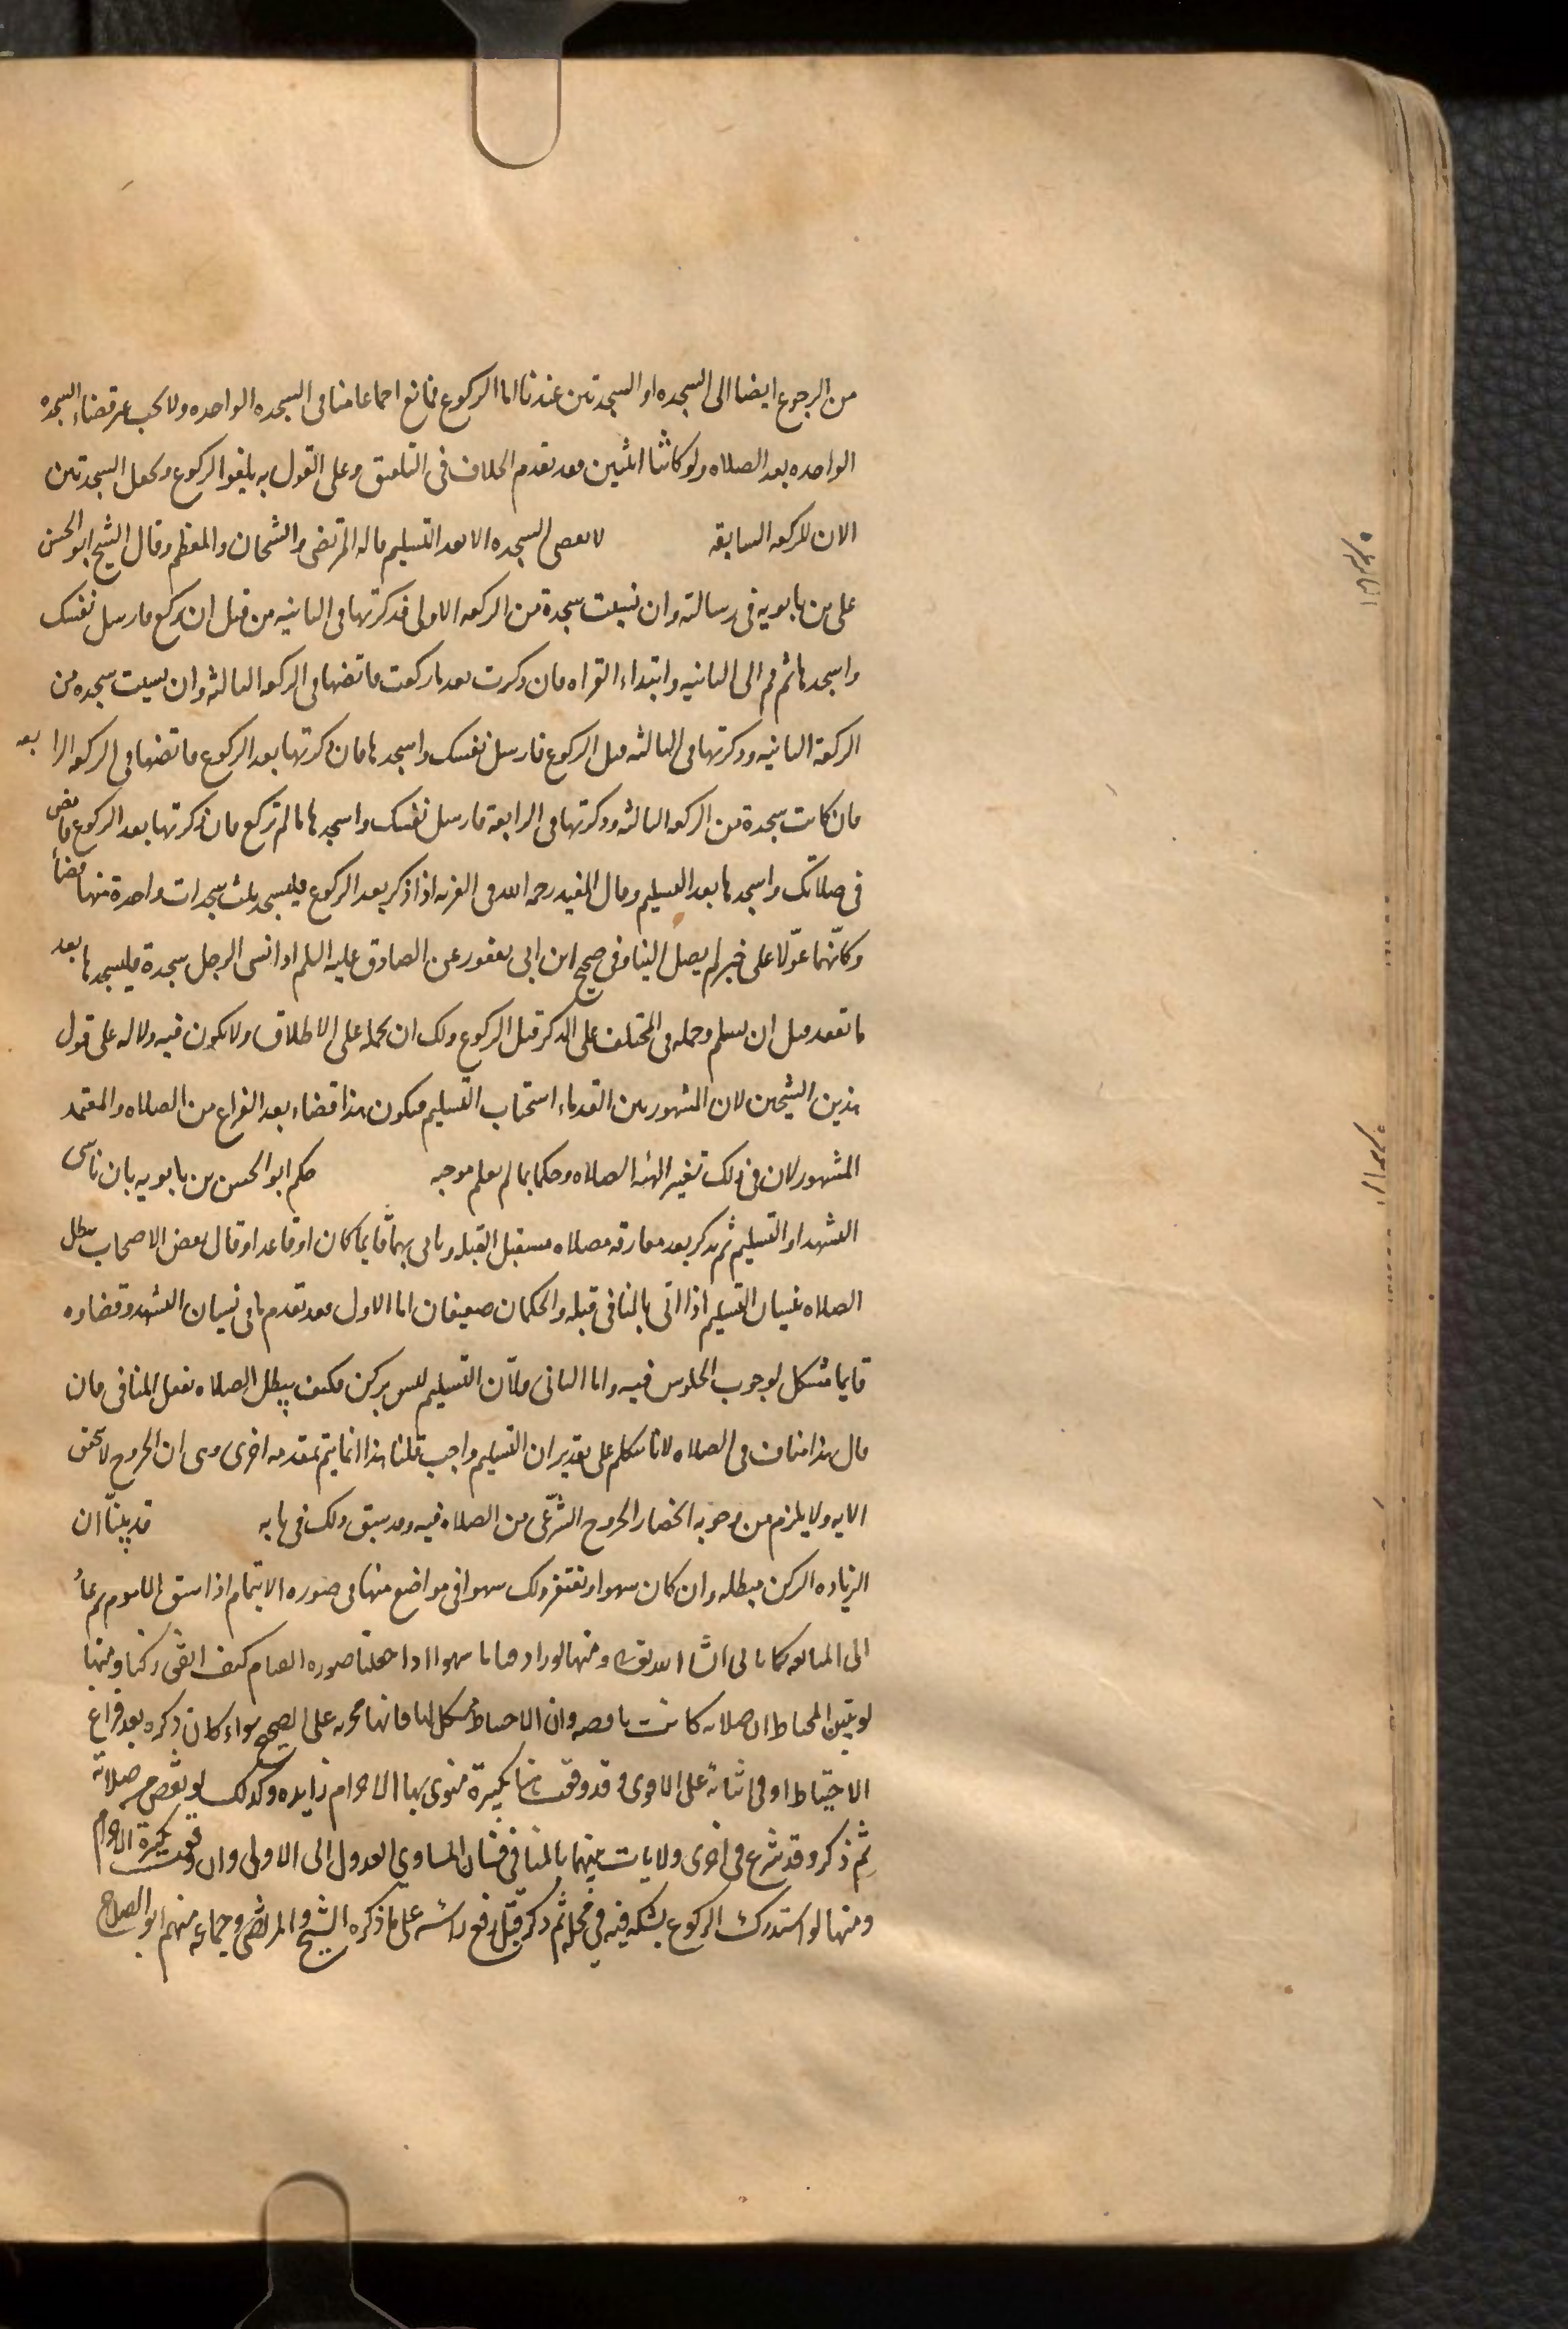 من الرجوع ايضا الى السجده او السجدتين عندنا اما الركوع فمانع اجماعا منا فى السجده الواحده ولا يجب غير قضاء السجده
الواحده بعد الصلاه ولو كانتا اثنتين فقد تقدم الخلاف فى التلفيق وعلى القول به يلغوا الركوع ويجعل السجدتين
الان للركعه السابقه لا يقضى السجده الا بعد التسليم قاله المرتضى والشيخان والمعظم وقال الشيخ ابو الحسن
على بن بابويه فى رسالته وان نسيت سجدة من الركعه الاولى فذكرتها فى الثانيه من قبل ان تركع فارسل نفسك
واسجدها ثم قم الى الثانيه وابتداء القراه فان ذكرت بعد ما ركعت فاقضها فى الركعه الثالثه وان نسيت سجده من
الركعة الثانيه وذكرتها فى الثالثه قبل الركوع فارسل نفسك واسجدها فان ذكرتها بعد الركوع فاقضها فى الركعه الرا بعه
فان كانت سجدة من الركعه الثالثه وذكرتها فى الرابعة فارسل نفسك واسجدها ما لم تركع فان ذكرتها بعد الركوع فامض
فى صلاتك واسجدها بعد التسليم وقال المفيد رحمه الله فى الغريه اذا ذكر بعد الركوع فليسجد ثلث سجدات واحدة منها قضاء
وكانّهما عوّلا على خبر لم يصل الينا وفى صحيح ابن ابى يعفور عن الصادق عليه السلم اذا نسى الرجل سجدة فليسجدها بعد
ما تقعد قبل ان يسلم وحمله فى المختلف على الذكر قبل الركوع ولك ان تحمله على الاطلاق ولا يكون فيه دلاله على قول
هذين الشيخين لان المشهور بين القدماء استحباب التسليم فيكون هذا قضاء بعد الفراغ من الصلاه والمعتمد
المشهور لان فى ذلك تغيير الهيئه الصلاه وحكما بما لم يعلم موجبه حكم ابو الحسن بن بابويه بان ناسى
التشهد او التسليم ثم يذكر بعد مفارقه مصلاه يستقبل القبله وياتى بهما قايما كان او قاعدا وقال بعض الاصحاب يبطل
الصلاه بنسيان التسليم اذا اتى بالمنافى قبله والحكمان ضعيفان اما الاول فقد تقدم ما فى نسيان التشهد وقضاوه
قايما مشكل لوجوب الجلوس فيه واما الثانى فلأن التسليم ليس بركن فكيف يبطل الصلاه بفعل المنافى فان
قال هذا مناف فى الصلاه لانا نتكلم على تقدير ان التسليم واجب قلنا هذا انما يتم بمقدمه اخرى وهى ان الخروج لا يتحقق
الا به ولا يلزم من وجوبه انحصار الخروج الشرعّى من الصلاه فيه وقد سبق ذلك فى بابه قد بينّا ان
الزياده الركن مبطله وان كان سهوا ويغتفر ذلك سهوا فى مواضع منها فى صوره الايتمام اذا سبق الماموم ثم عاد
الى المتابعه كما ياتى انشا الله تعالى ومنها لو زاد قياما سهوا اذا جعلنا صوره القيام كيف اتفق ركنا ومنها
لو تبين المحتاط ان صلاته كانت ناقصه وان الاحتياط مكمل لها فانها مجزيه على الصحيح سواء كان ذكره بعد فراغ
الاحتياط او فى اثنائه على الاقوى وقد وقعت هنا تكبيرة منوى بها الاحرام زايده وكذلك لو نقص من صلاته
ثم ذكر وقد شرع فى اخرى ولا يات بينهما بالمنافى فشان المساوى العدول الى الاولى وان وقعت تكبيرة الاحرام
ومنها لو استدرك الركوع بشكه فيه فى محله ثم ذكر قبل رفع راسه على ما ذكره الشيخ والمرتضى وجماعه منهم ابو الصلاح